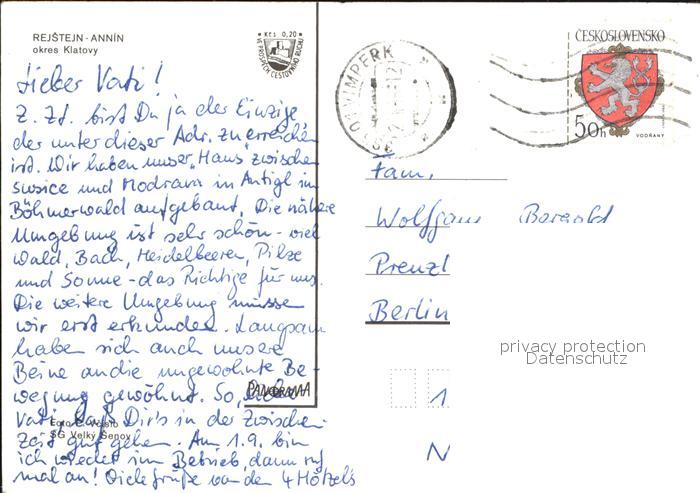 REJŠTEJN - ANNÍN
okres Klatovy
Kčs 0,20
VE PROSPĚCH CESTOVNÍHO RUCHU
Lieber Vati!
Z. Zt. bist Du ja der Einzige,
der unter dieser Adr. zu erreichen
ist. Wir haben unser "Haus" zwischen
Susice und Modrava in Antigl im
Böhmerwald aufgebaut. Die nähere
Umgebung ist sehr schön - viel
Wald, Bach, Heidelbeeren, Pilze
und Sonne - das Richtige für uns.
Die weitere Umgebung müssen
wir erst erkunden. Langsam
haben sich auch unsere
Beine an die ungewohnte Be-
wegung gewöhnt. So,
Vati, laß Dir's in der Zwischen-
zeit gut gehen. Am 1.9. bin
ich wieder im Betrieb, dann ruf
mal an! Viele Grüße von den 4
PANORAMA
Foto
SG Velký Šenov
VIMPERK
ČESKOSLOVENSKO
50h
VODŇANY
Fam.
Wolfgang
Prenzl
Berlin
1
N
privacy protection
Datenschutz